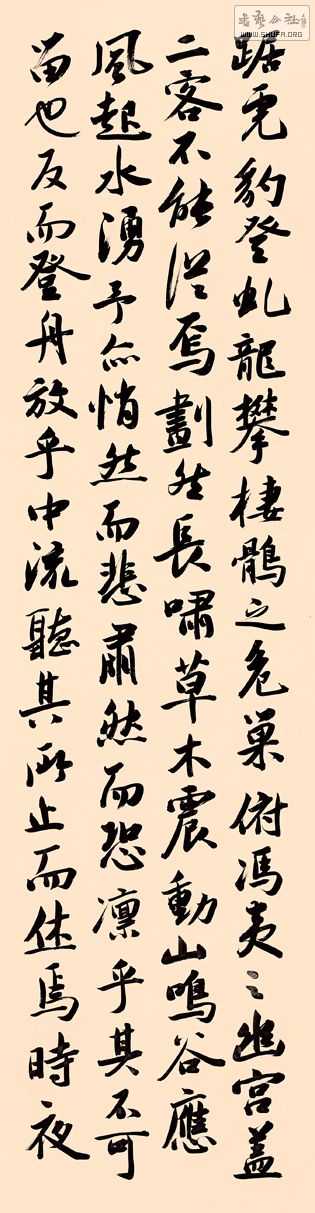 書藝公社
WWW.SHUFA.ORG
踞虎豹登虬龍攀棲鶻之危巢俯馮夷之幽宮蓋
二客不能從焉劃然長嘯草木震動山鳴谷應
風起水湧予亦悄然而悲肅然而恐凛乎其不可
留也反而登舟放乎中流聽其所止而休焉時夜